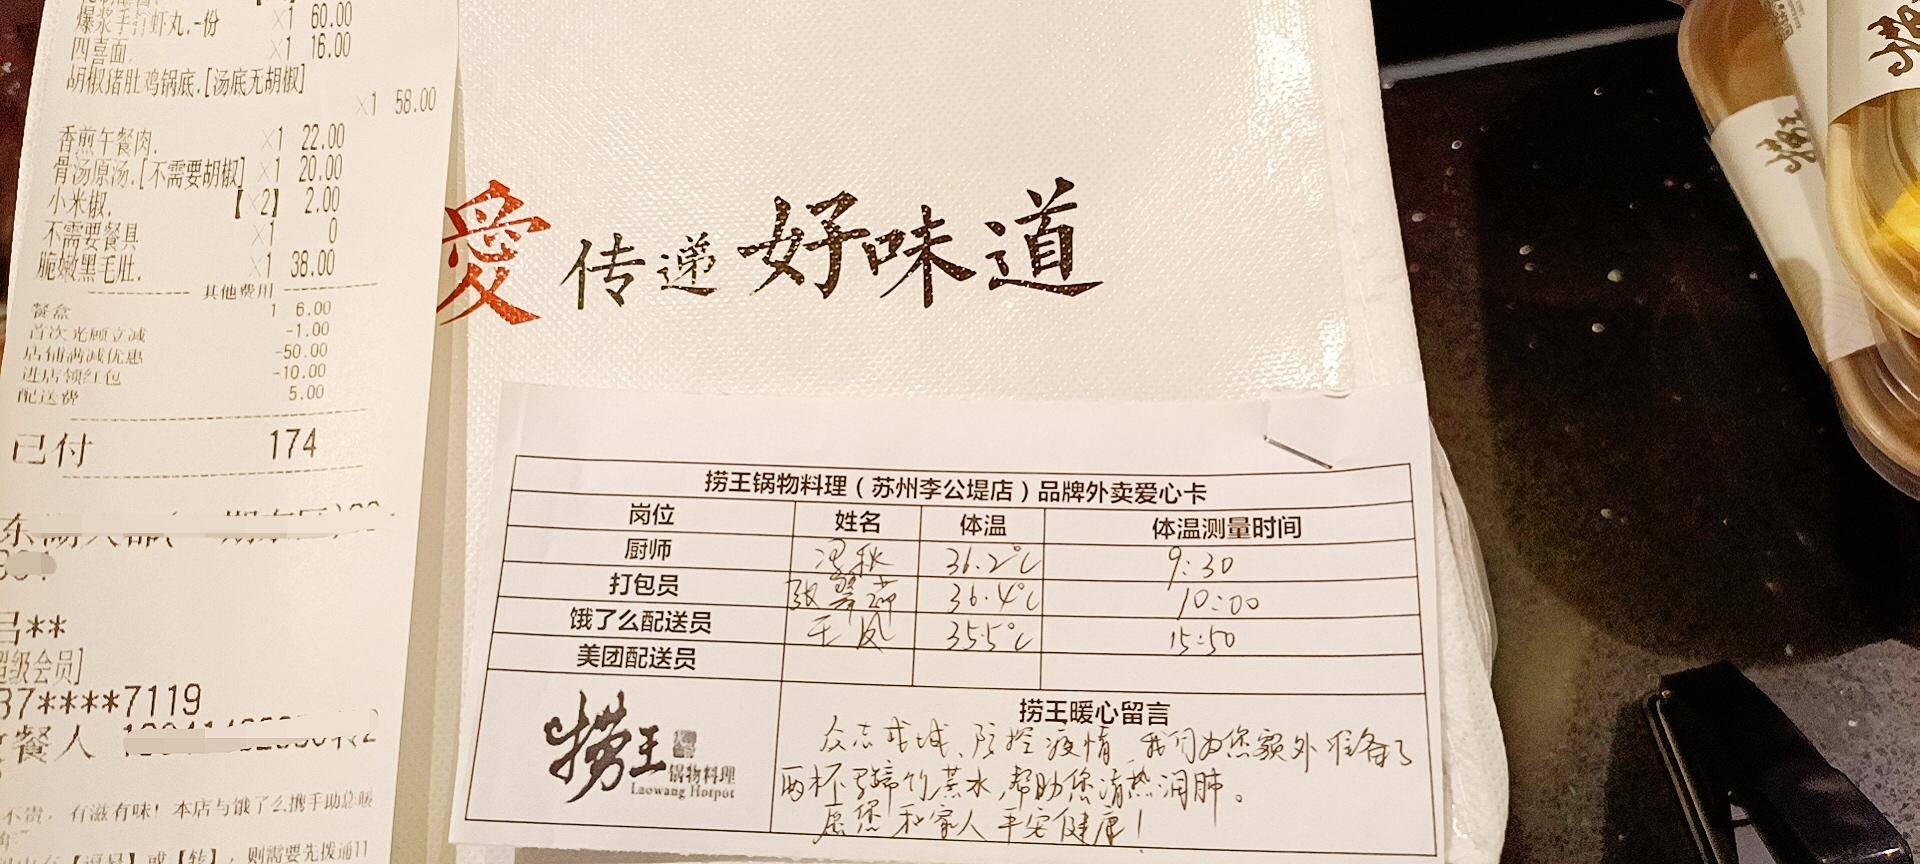 爆浆手打虾丸.-份 ×1 60.00
四喜面. ×1 16.00
胡椒猪肚鸡锅底.[汤底无胡椒]
×1 58.00
香煎午餐肉. ×1 22.00
骨汤原汤.[不需要胡椒] ×1 20.00
小米椒. 【×2】 2.00
不需要餐具 ×1 0
脆嫩黑毛肚. ×1 38.00
其他费用
餐盒 1 6.00
首次光顾立减 -1.00
店铺满减优惠 -50.00
进店领红包 -10.00
配送费 5.00
已付 174
吕**
超级会员]
37****7119
餐人
不贵，有滋有味！本店与饿了么携手助您暖
或【转】，则需要先拨通11
爱传递好味道
捞王锅物料理（苏州李公堤店）品牌外卖爱心卡
岗位 姓名 体温 体温测量时间
厨师 36.2℃ 9:30
打包员 36.4℃ 10:00
饿了么配送员 王凤 35.5℃ 15:50
美团配送员
捞王
锅物料理
Laowang Hotpot
捞王暖心留言
众志成城、防控疫情，我们为您额外准备了
两杯马蹄竹蔗水，帮助您清热润肺。
愿您和家人平安健康！
捞王
捞王